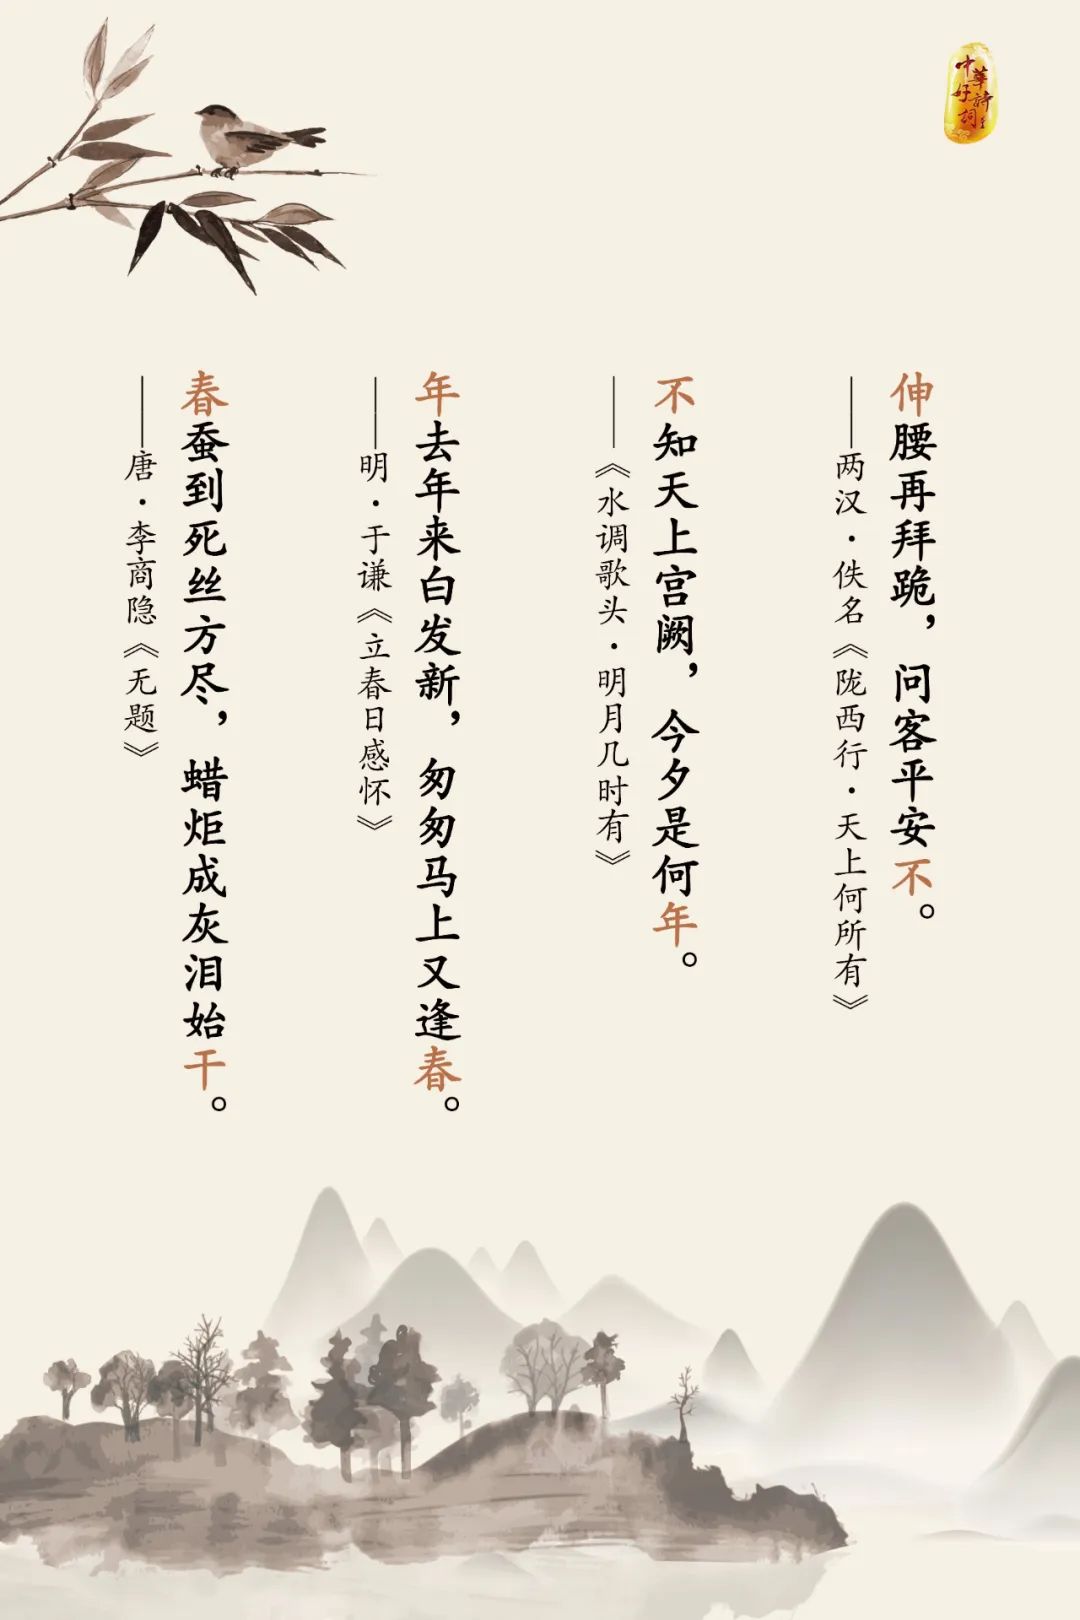 中华好诗词
伸腰再拜跪，问客平安不。
——两汉·佚名《陇西行·天上何所有》
不知天上宫阙，今夕是何年。
——《水调歌头·明月几时有》
年去年来白发新，匆匆马上又逢春。
——明·于谦《立春日感怀》
春蚕到死丝方尽，蜡炬成灰泪始干。
——唐·李商隐《无题》